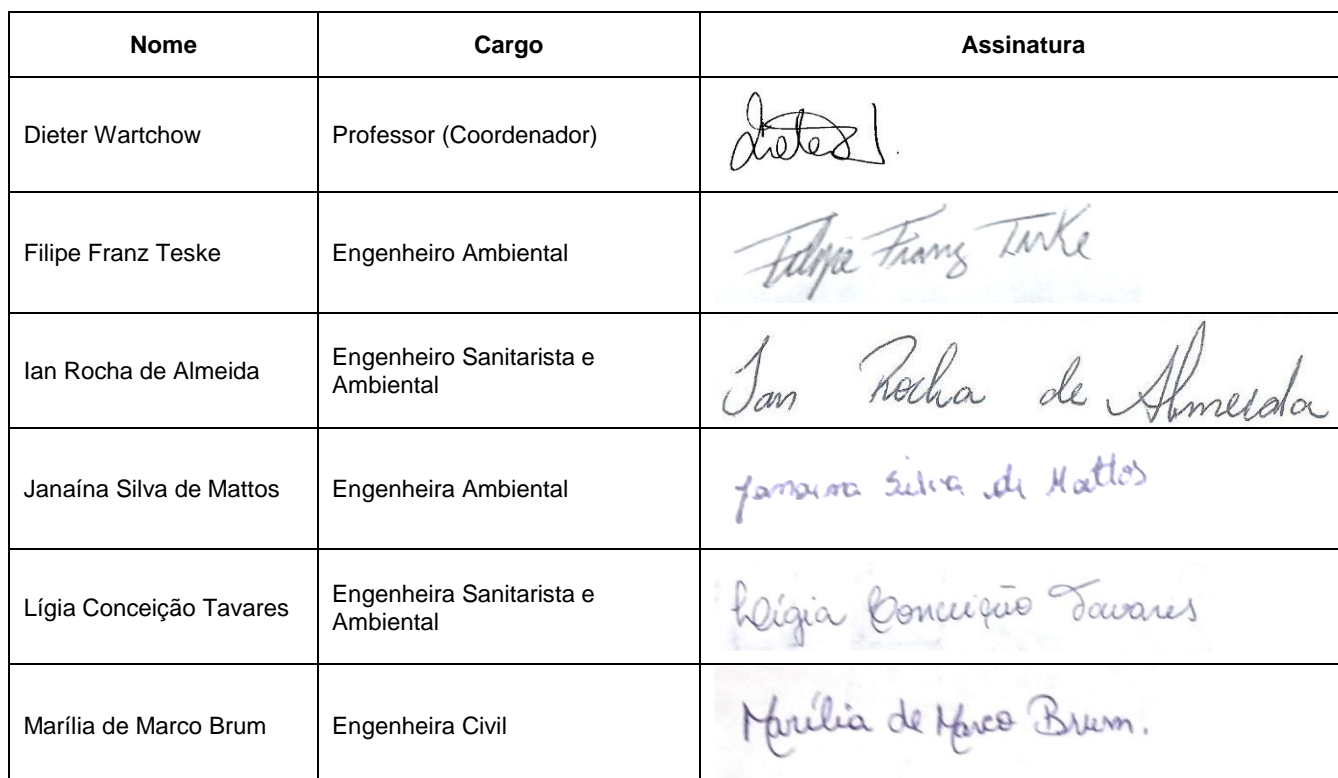 Nome Cargo Assinatura
Dieter Wartchow Professor (Coordenador) Dieter
Filipe Franz Teske Engenheiro Ambiental Filipe Franz Teske
Ian Rocha de Almeida Engenheiro Sanitarista e Ambiental Ian Rocha de Almeida
Janaína Silva de Mattos Engenheira Ambiental Janaina Silva de Mattos
Lígia Conceição Tavares Engenheira Sanitarista e Ambiental Lígia Conceição Tavares
Marília de Marco Brum Engenheira Civil Marília de Marco Brum.